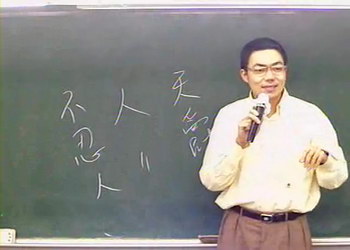 天爵
人〃
不忍人